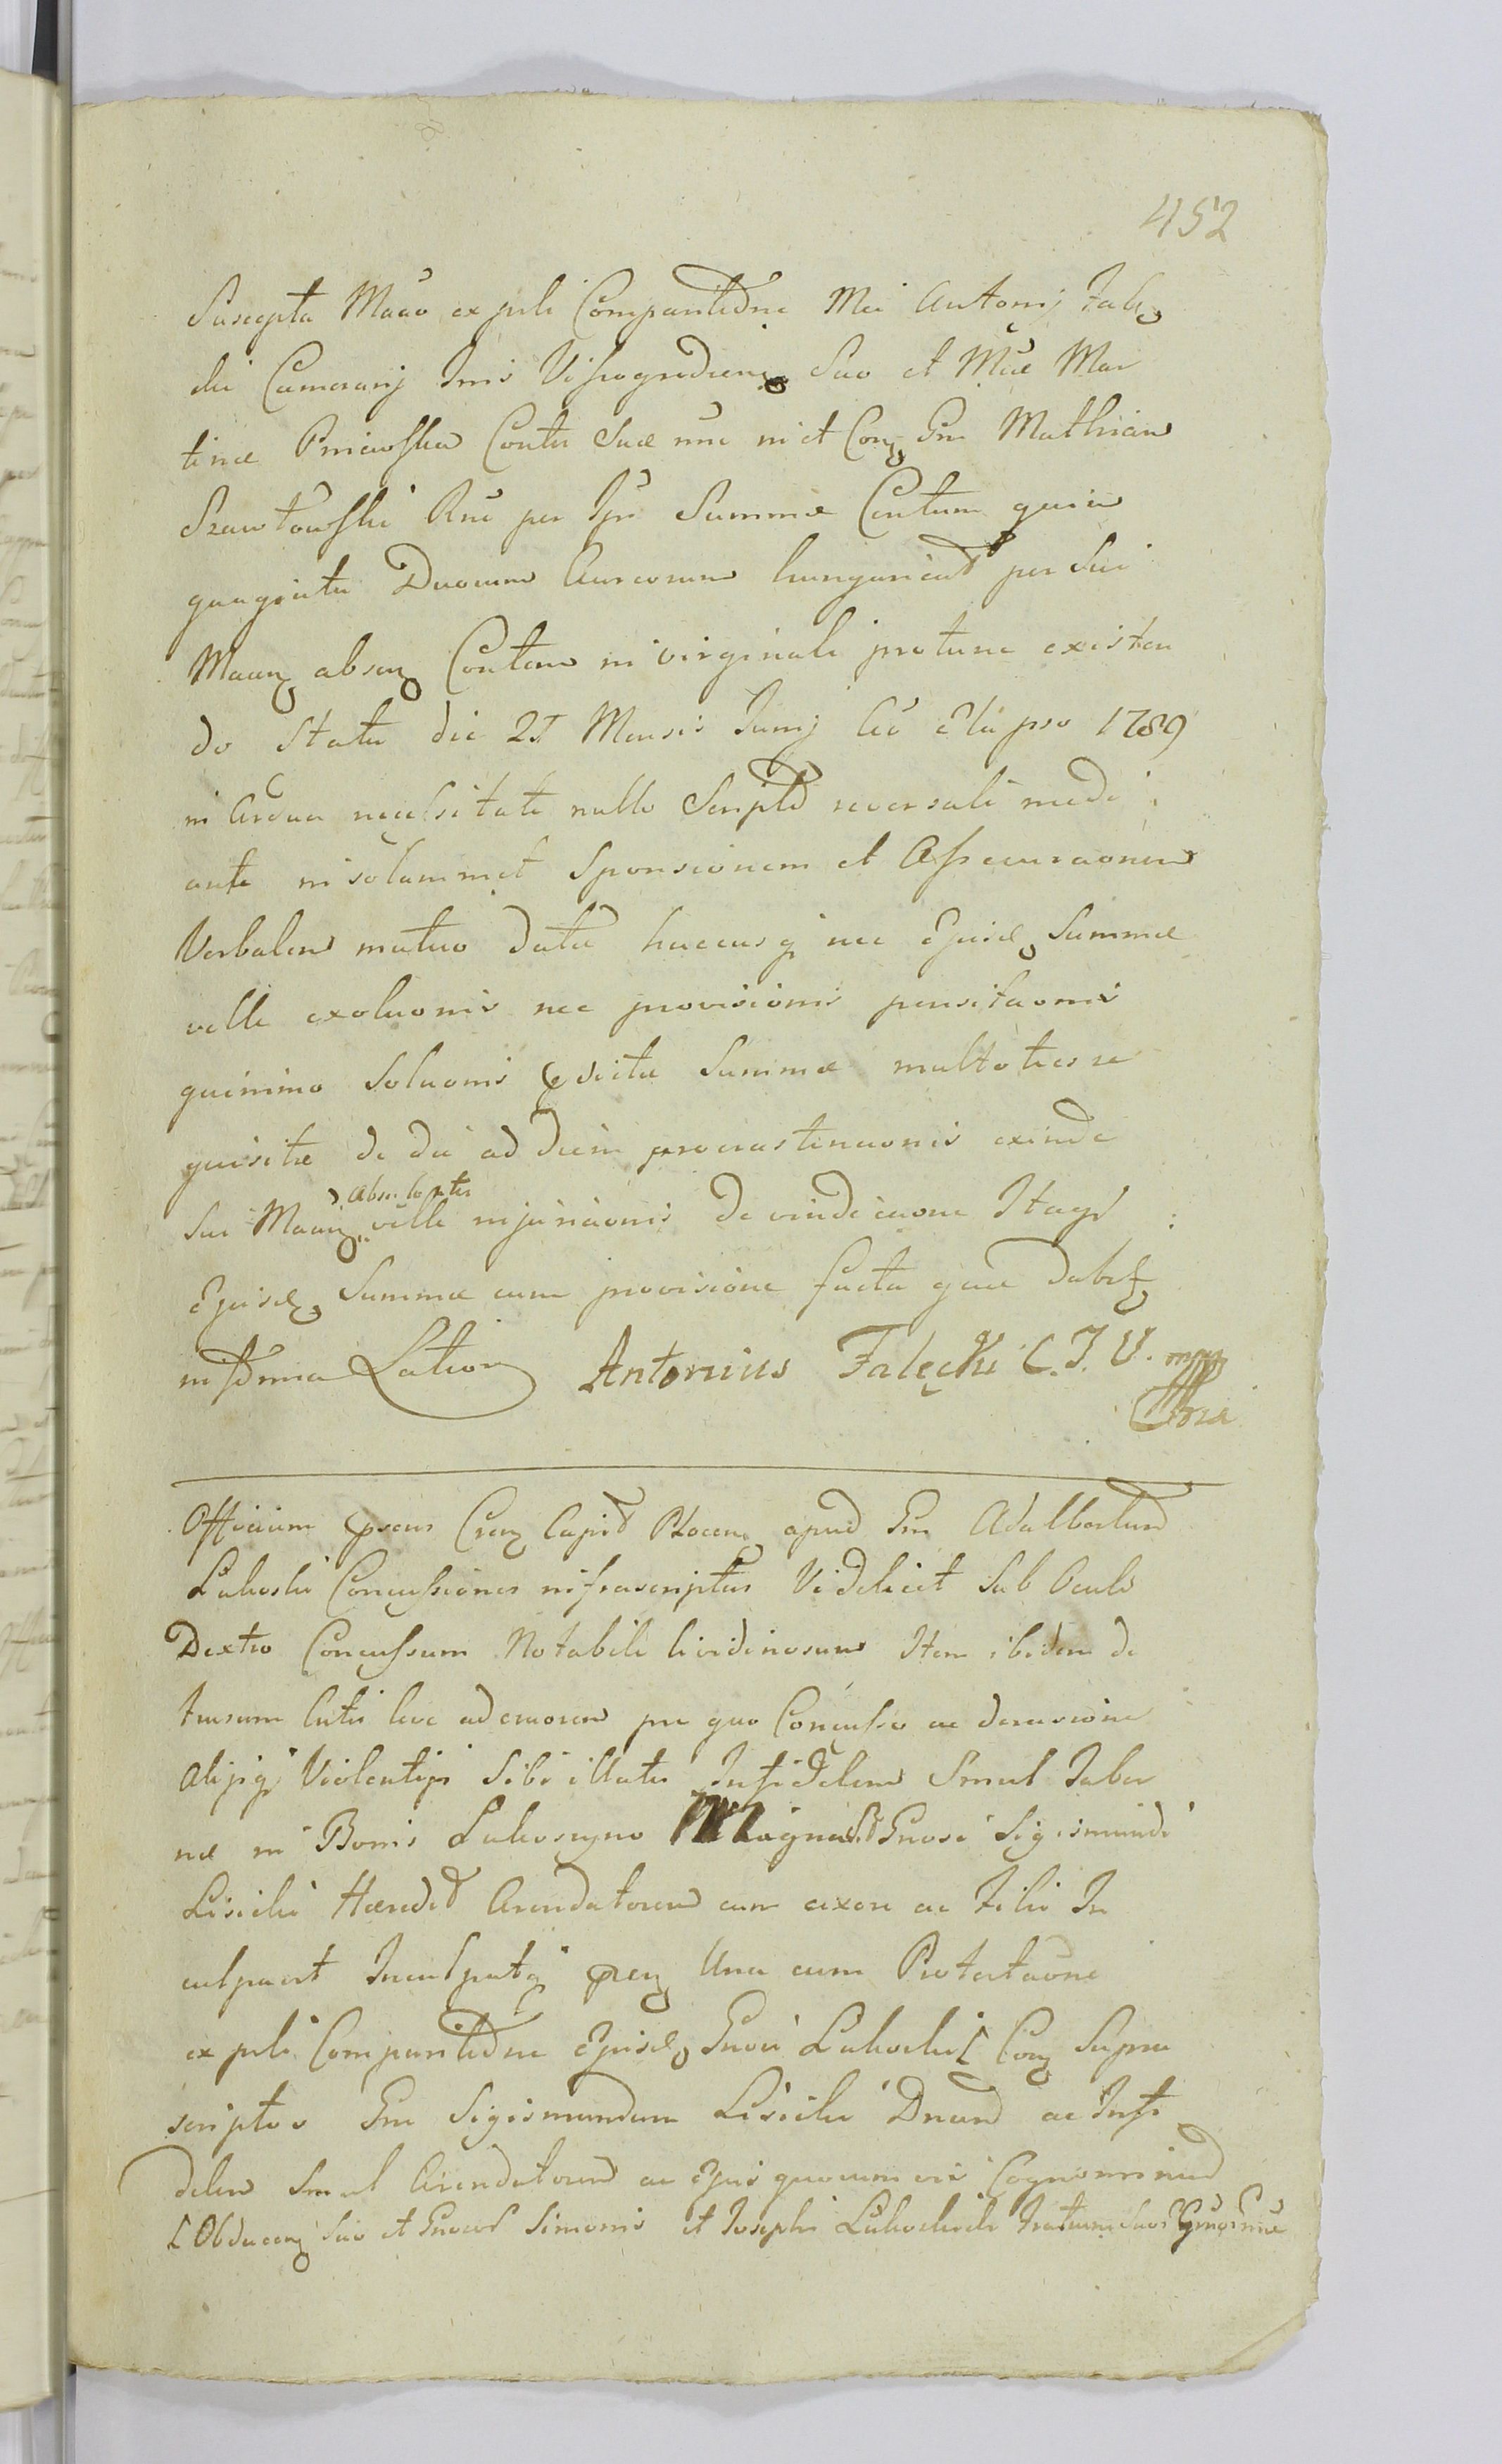 452
Suscepta Mãao ex prli Comparitione Mci Antonij Fale
cki Camerarij Trris Vissogrodien Suo et Mcæ Mar
tinæ Pniewska Contis Suæ nne ni et Con Gm Mathiam
Szawłowski Rne per Ipm Summæ Centum quin
quaginta Duorum Aureorum hungarical per Sui
Maan absen Contem in virginali protunc existen
do Statu die 25 Mensis Junij Aõ Elapso 1789
in Ardua necessitate nullo Scripto reversali medi
ante ni solummet Sponsionem et Assecuraonem
Verbalem mutuo data hucusq nec Ejusd Summæ
velle exoluonis nec provisionis pensitaonis
quinimo Soluonis Edicta Summæ multoties re
quisitæ de die ad diem procrastinaonis exinde
Absolventis
Sui Maan velle injuriaonis De vindicaone Itaq
Ejusd Summæ cum provisione facta quæ dabit
in Tmia Lation Antonius Falęcki C. T. V. mpp

Officium psens Cren Capit Plocen apud Gm Adalbertum
Lukoski Concussiones infrascriptas Videlicet Sub Oculo
Dextro Concussum Notabile lividinosum Item ibidem de
trusum Cutis leve ad cruorem pro quo Concusso ac detrusione
Alijsq Violentijs Sibi illatis Infidelem Smul Taber
næ in Bonis Lukoszyno Magnad Gnosi Sigismundi
Lisicki Hæred Arendatorem cum uxore ac Filio In
culpavit Inculpatq pren Una cum Protestaone
ex prli Comparitione Ejusd Gnosi Lukoski [ Con Supra
scriptos Gm Sigismundum Lisicki Dnum ac Infi
delem Smul Arendatorem ac Ejus quocumvis Cognominad
[ Obducen Suo et Gnosor Simonis et Josephi Lukoskich Fratrum Suor